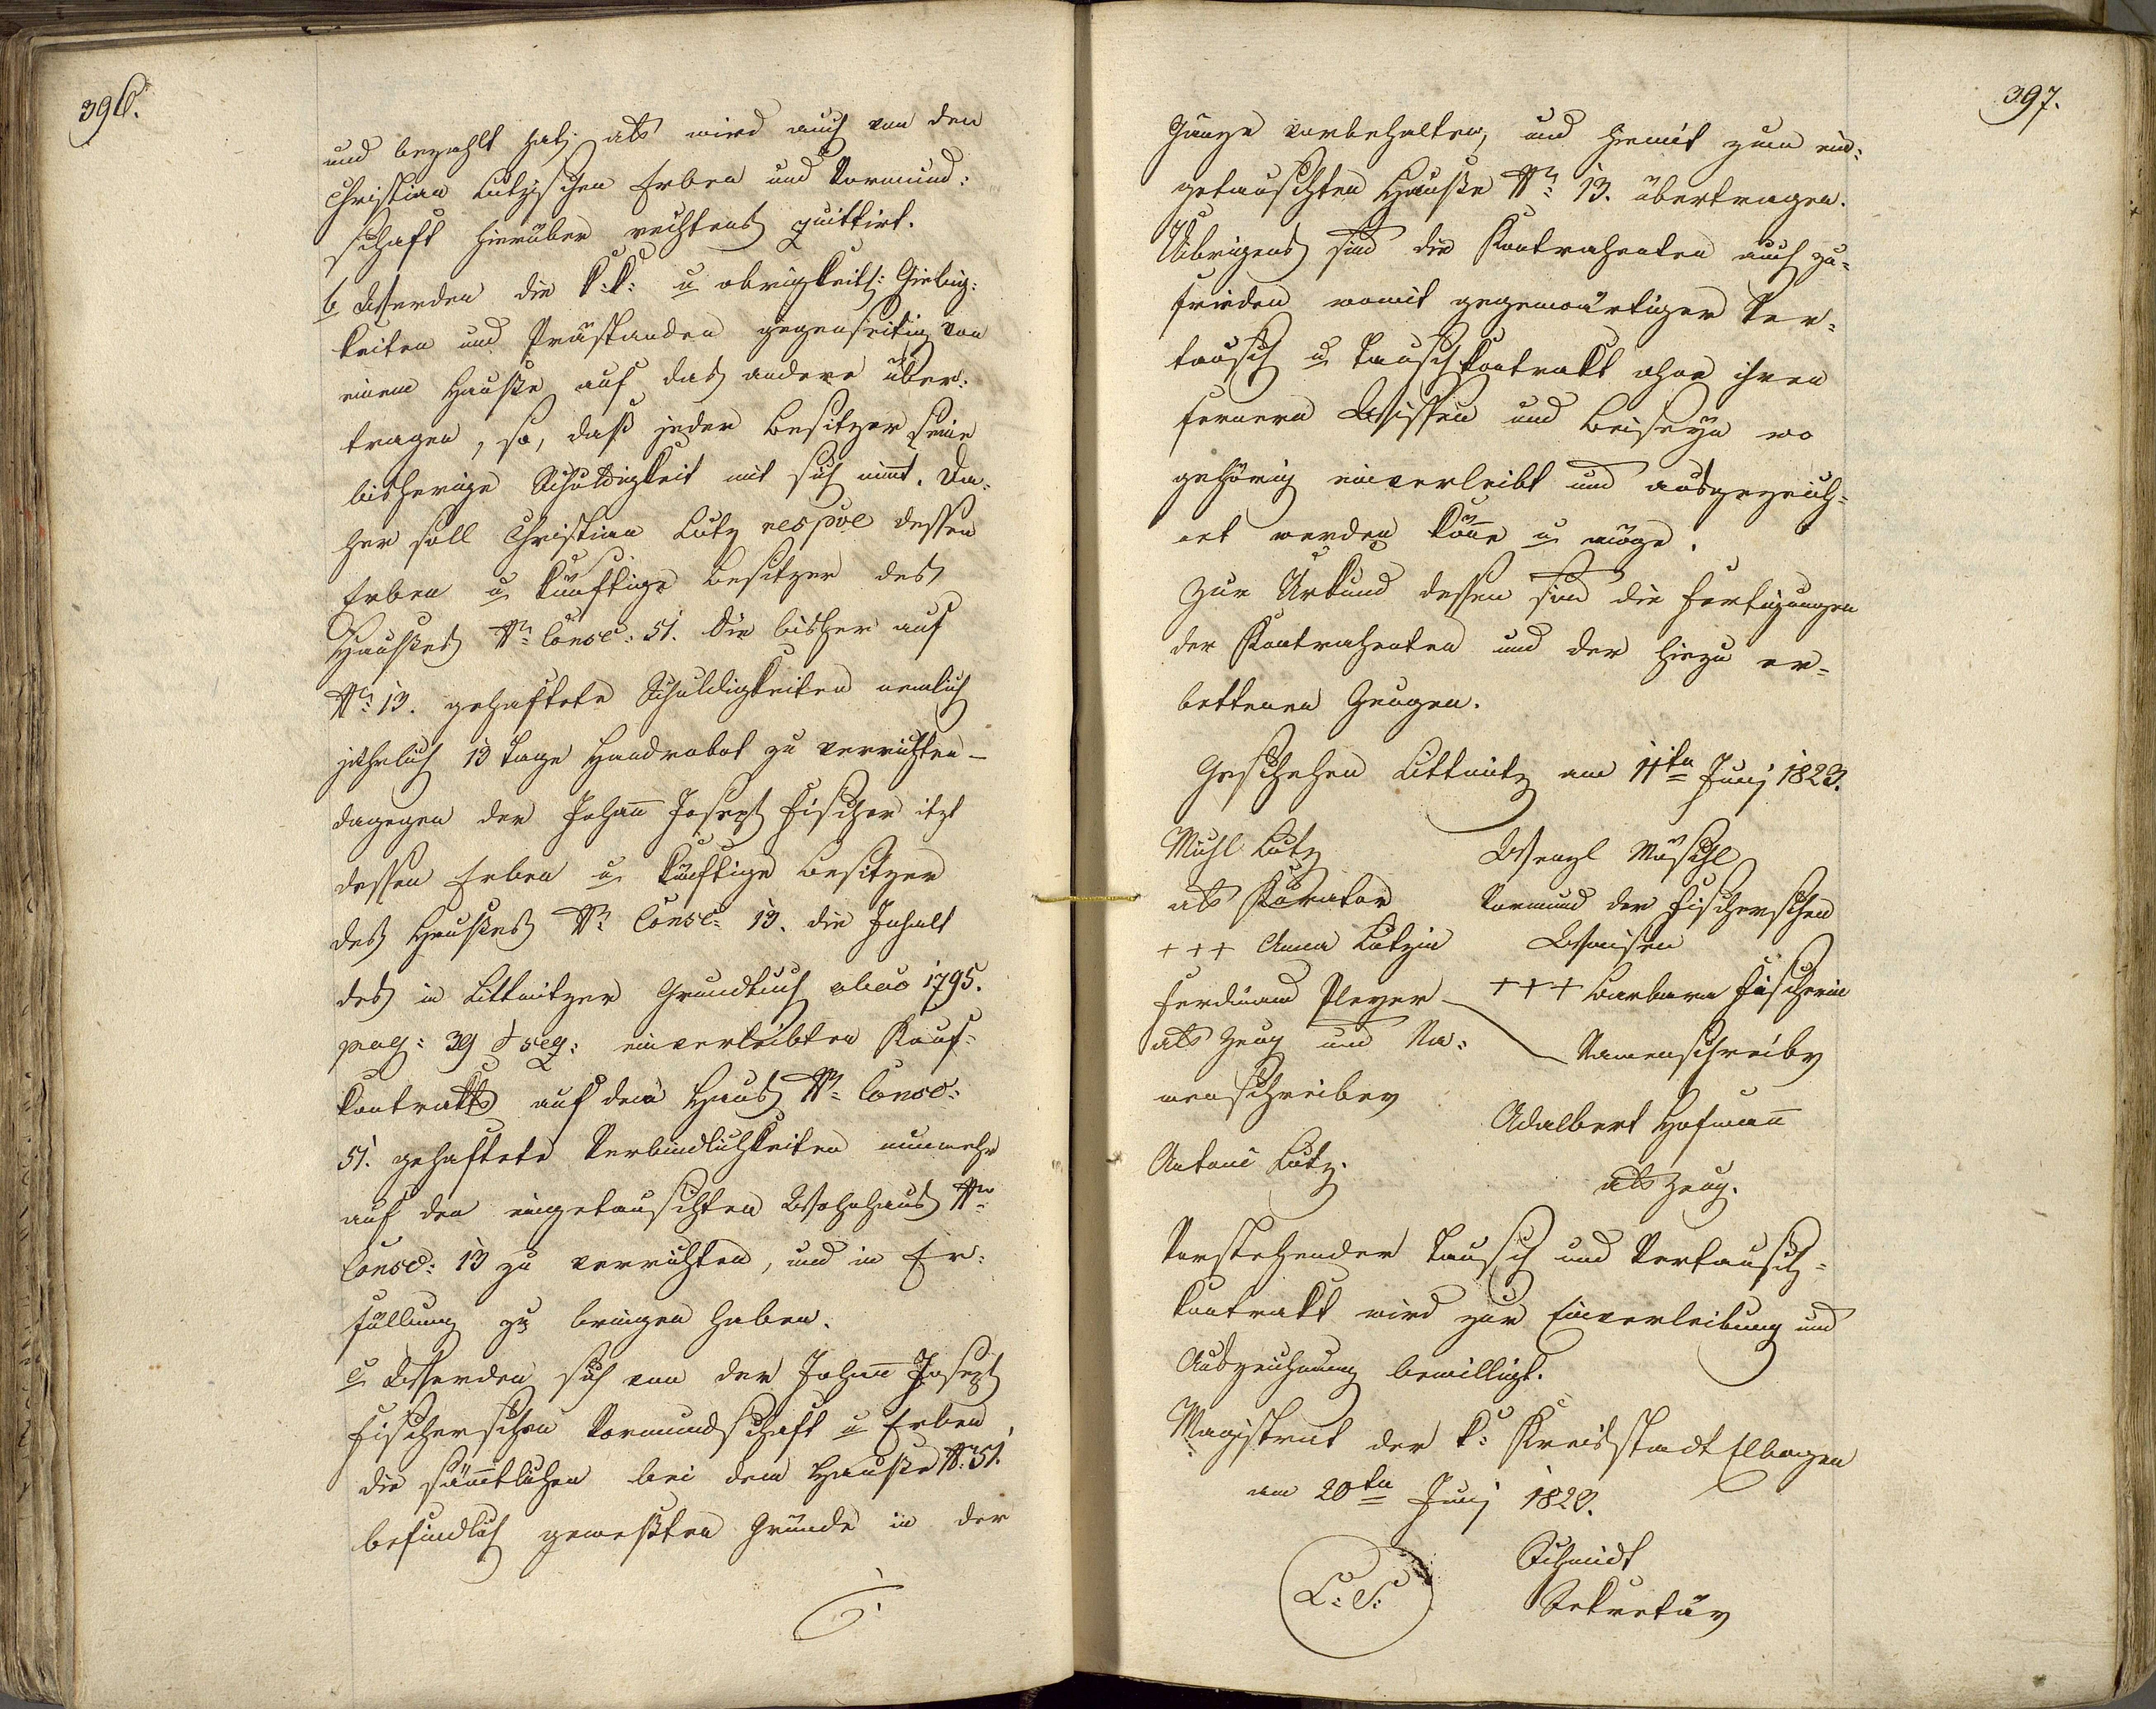 396.
und bezahlt hat, als wird auch von den
Christian Lutzischen Erben und Vormund:
schaft hierüber rechtens quittirt.
b Werden die k:k: u obrigkeitl: Giebig:
keiten und Prästanden gegenseitig von
einem Hauße auf das andere über:
tragen, so, daß jeder Besitzer seine
bisherige Schuldigkeit mit sich nimt. Da:
her soll Christian Lutz respve dessen
Erben u künftige Besitzer des
Haußes Nr Consc: 51. die bisher auf
Nr 13. gehaftete Schuldigkeiten nemlich
jährlich 13 Tage Handrobot zu verrichten –
dagegen der Johann Joseph Fischer itzt
dessen Erben u künftige Besitzer
des Haußes Nr Consc: 13. die Inhalt
des in Littmitzer Grundbuch anno 1795.
pag: 39 & seq: einverleibten Kauf=
kontrakts auf dem Haus Nr Consc:
51. gehaftete Verbindlichkeiten nunmehr
auf den eingetauschten Wohnhaus Nr
Consc: 13 zu verrichten, und in Er:
füllung zu bringen haben.
c Werden sich von der Johann Joseph
Fischerischen Vormundschaft u Erben
die sämtlichen bei dem Hauße Nr 51.
befindlich geweßten Gründe in der
397.
Gänze vorbehalten, und hiemit zum ein:
getauschten Hauße Nr 13. übertragen.
Übrigens sind die Kontrahenten auch zu=
frieden womit gegenwärtiger Ver=
tausch u Tauschkontrakt ohne ihren
fernern Wissen und Beiseyn wo
gehörig einverleibt und ausgezeich=
net werden könne u möge.
Zur Urkund dessen sind die Fertigungen
der Kontrahenten und der hiezu er=
bettenen Zeugen.
Geschehen Littmitz am 11ten Junj 1823.
Michl Lutz
als Kurator
+++ Anna Lutzin
Ferdinand Pleyer
als Zeug und Na:
menschreiber
Antoni Lutz.
Wenzl Möschl
Vormund der Fischerischen
Waisen
+++ Barbara Fischerin
Namenschreiber
Adalbert Hofmann
als Zeug.
Vorstehender Tausch und Vertausch=
kontrakt wird zur Einverleibung und
Auszeichnung bewilligt.
Magistrat der k: Kreisstadt Elbogen
am 20ten Junj 1823.
L: S:
Schmidt
Sekretär